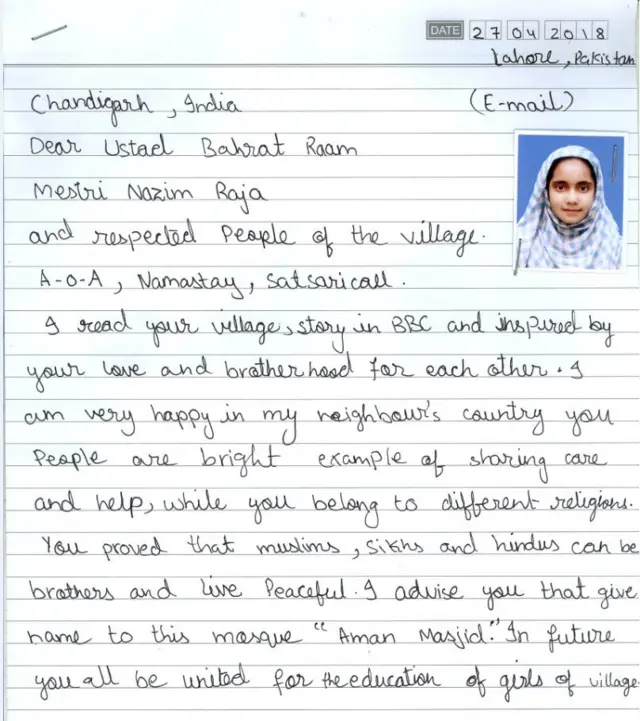 DATE 27 04 2018
Lahore, Pakistan
Chandigarh, India (E-mail)
Dear Ustad Bahrat Raam
Mestri Nazim Raja
and respected People of the village.
A-O-A, Namastay, Satsaricall.
I read your village,s story in BBC and inspired by
your love and brotherhood for each other. I
am very happy in my neighbour's country you
People are bright example of sharing care
and help, while you belong to different religions.
You proved that muslims, Sikhs and hindus can be
brothers and live Peaceful. I advise you that give
name to this mosque "Aman Masjid." In future
you all be united for the education of girls of village